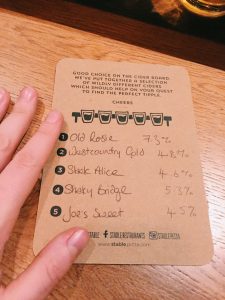 GOOD CHOICE ON THE CIDER BOARD.
WE'VE PUT TOGETHER A SELECTION
OF WILDLY DIFFERENT CIDERS
WHICH SHOULD HELP ON YOUR QUEST
TO FIND THE PERFECT TIPPLE.
CHEERS
1 Old Rosie 7.3%
2 Westcountry Gold 4.8%
3 Slack Alice 4.6%
4 Shaky Bridge 5.3%
5 Joe's Sweet 4.5%
STABLE STABLERESTAURANTS STABLEPIZZA
www.stablepizza.com